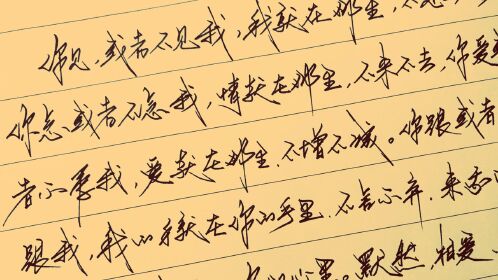 你见，或者不见我，我就在那里，不悲
你念或者不念我，情就在那里，不来不去，你爱
者不爱我，爱就在那里，不增不减。你跟或者
跟我，我的手就在你的手里，不舍不弃，来我
你的心里。默然，相爱，